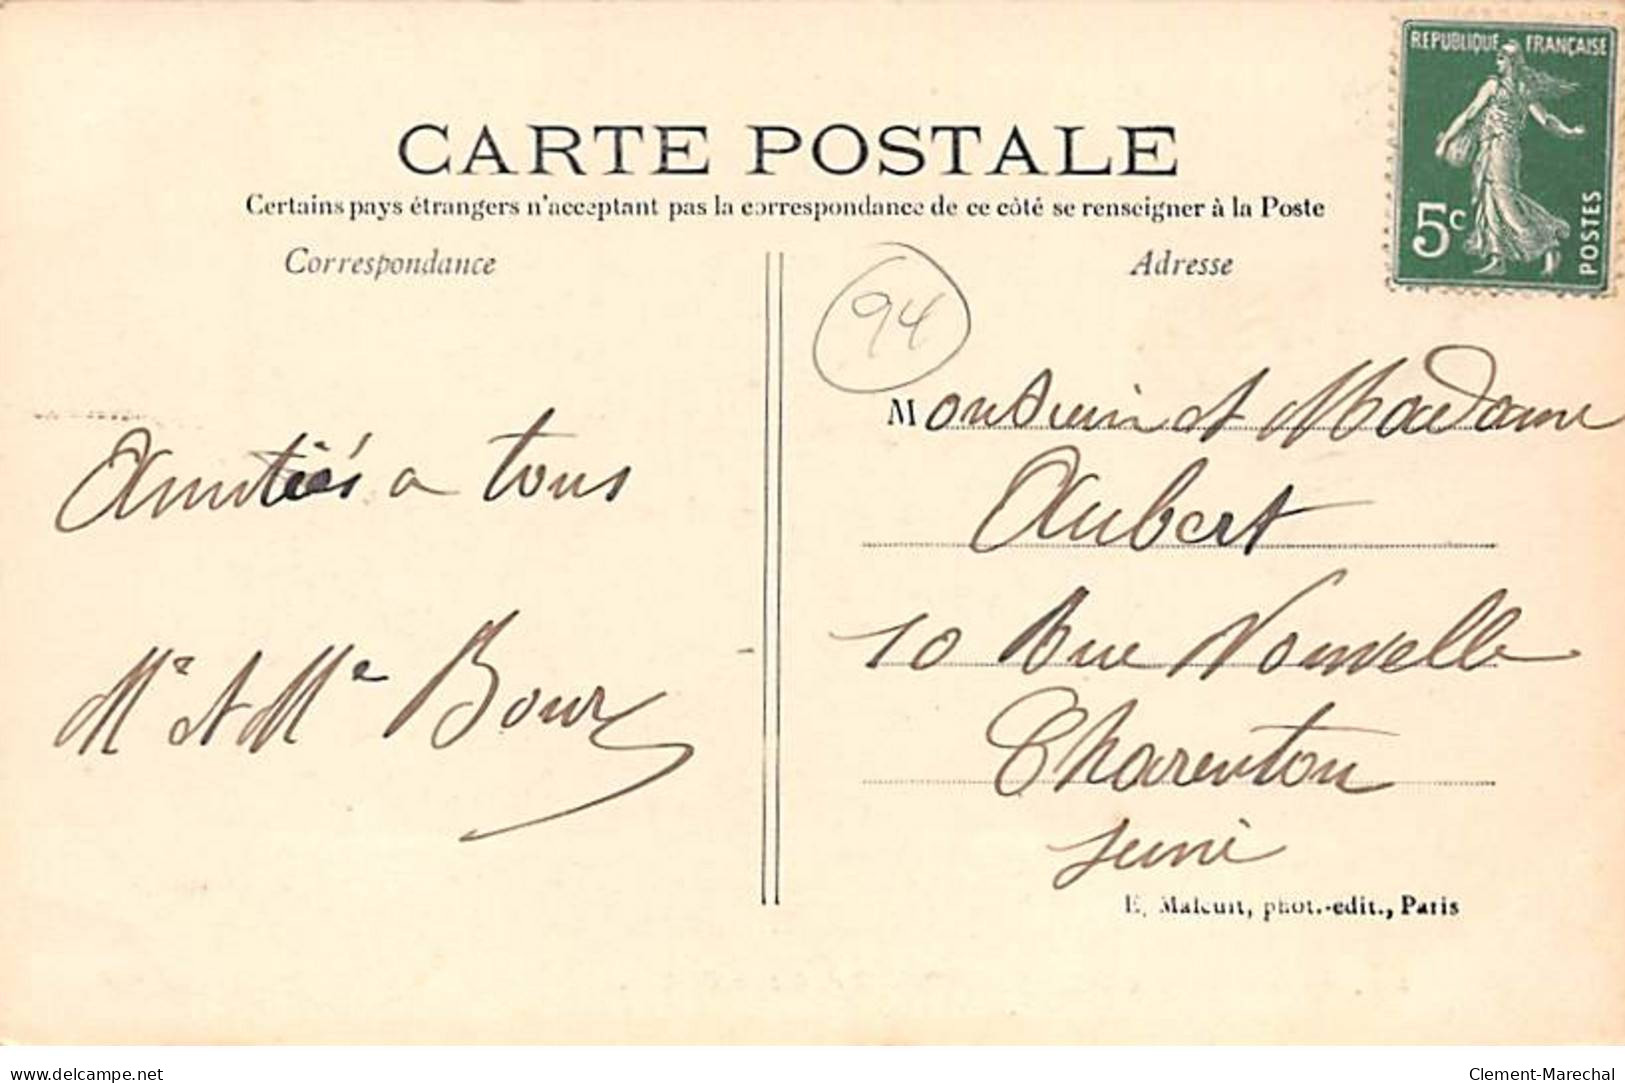 REPUBLIQUE FRANÇAISE
5c
POSTES
CARTE POSTALE
Certains pays étrangers n'acceptant pas la correspondance de ce côté se renseigner à la Poste
Correspondance
Adresse
94
Amitiés a tous
Mr et Me Bour
Monsieur et Madame
Aubert
10 Rue Nouvelle
Charenton
Seine
E. Malcuit, phot.-edit., Paris
www.delcampe.net
Clement-Marechal